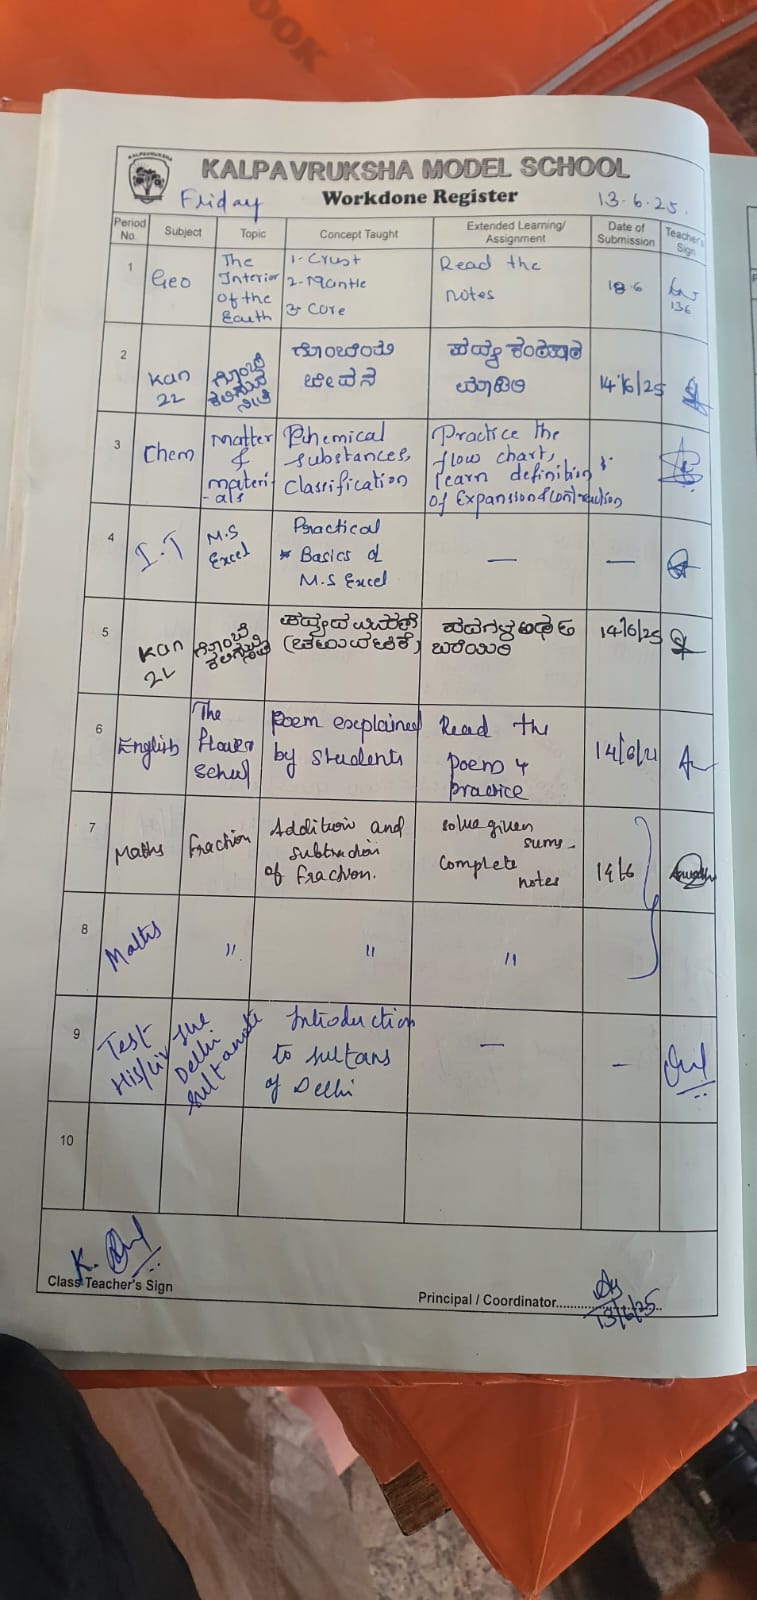 KALPAVRUKSHA MODEL SCHOOL
Friday
Workdone Register
13.6.25.
Period No.
Subject
Topic
Concept Taught
Extended Learning/ Assignment
Date of Submission
Teacher's Sign
1
Geo
The
Interior
of the
Earth
1- Crust
2-Mantle
3- Core
Read the
notes
18.6
136
2
Kan
2L
ಗೊಂಬೆ
ಕಲಿಸುವ
ನೀತಿ
ಗೊಂಬೆಯ
ಪದ್ಯ ಕಂಠಪಾಠ
ಮಾಡಿರಿ
14/6/25
3
Chem
Matter
&
materi-
-als
Chemical
substances,
Classification
Practice the
flow chart,
learn definition
of Expansion & contraction
4
I.T
M.S
Excel
Practical
* Basics of
M.S Excel
—
—
5
Kan
2L
ಗೊಂಬೆ
ಕಲಿಸುವ
ನೀತಿ
ಪದ್ಯದ
ಪದಗಳ ಅರ್ಥ
ಬರೆಯಿರಿ
14/6/25
6
English
The
flower
School
Poem explained
by students
Read the
poem &
practice
14/6/
7
Maths
Fraction
Addition and
subtraction
of fraction.
solve given
sums.
Complete
notes
14/6
8
Maths
"
"
"
9
Test
His/civ
The
Delhi
Sultanate
Introduction
to sultans
of Delhi
—
–
10
K.
Class Teacher's Sign
Principal / Coordinator
13/6/25